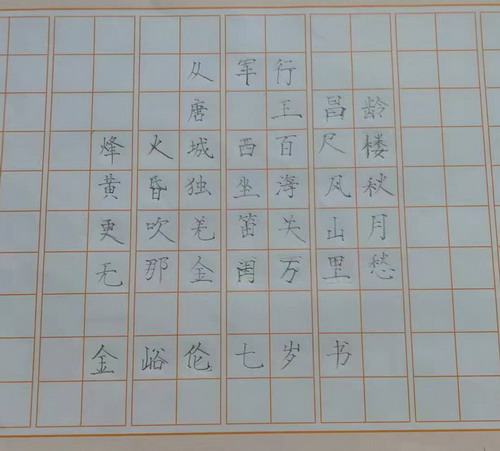 从军行
唐 王昌龄
烽火城西百尺楼
黄昏独坐海风秋
更吹羌笛关山月
无那金闺万里愁
金峪伦七岁书